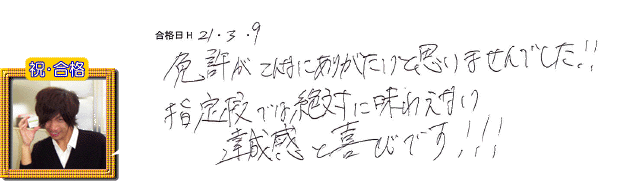 合格日 H 21・3・9
祝・合格
免許がこんなにありがたいと思いませんでした!!
指定校では絶対に味わえない
達成感と喜びです!!!